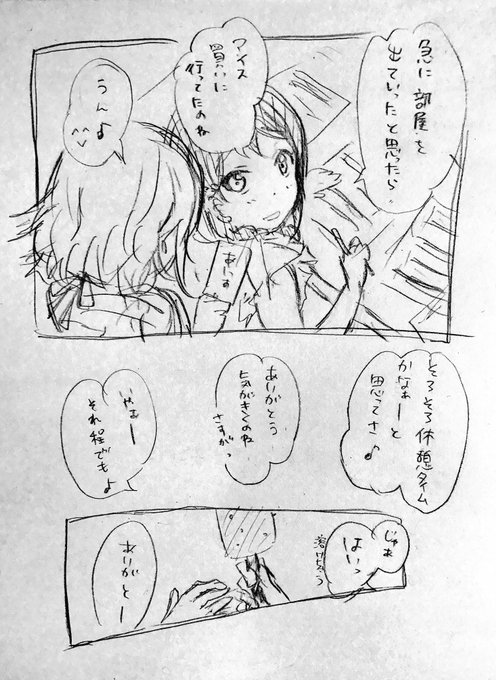 急に部屋を
出ていったと思ったら。
アイス
買いに
行ってたのね
うんよ
あいす
そろそろ休憩タイム
かなぁーと
思ってさ♪
ありがとう
気がきくのね
さすがっ
いやぁー
それ程でもよ
じゃぁ
はいっ
溶けちゃう
ありがとー